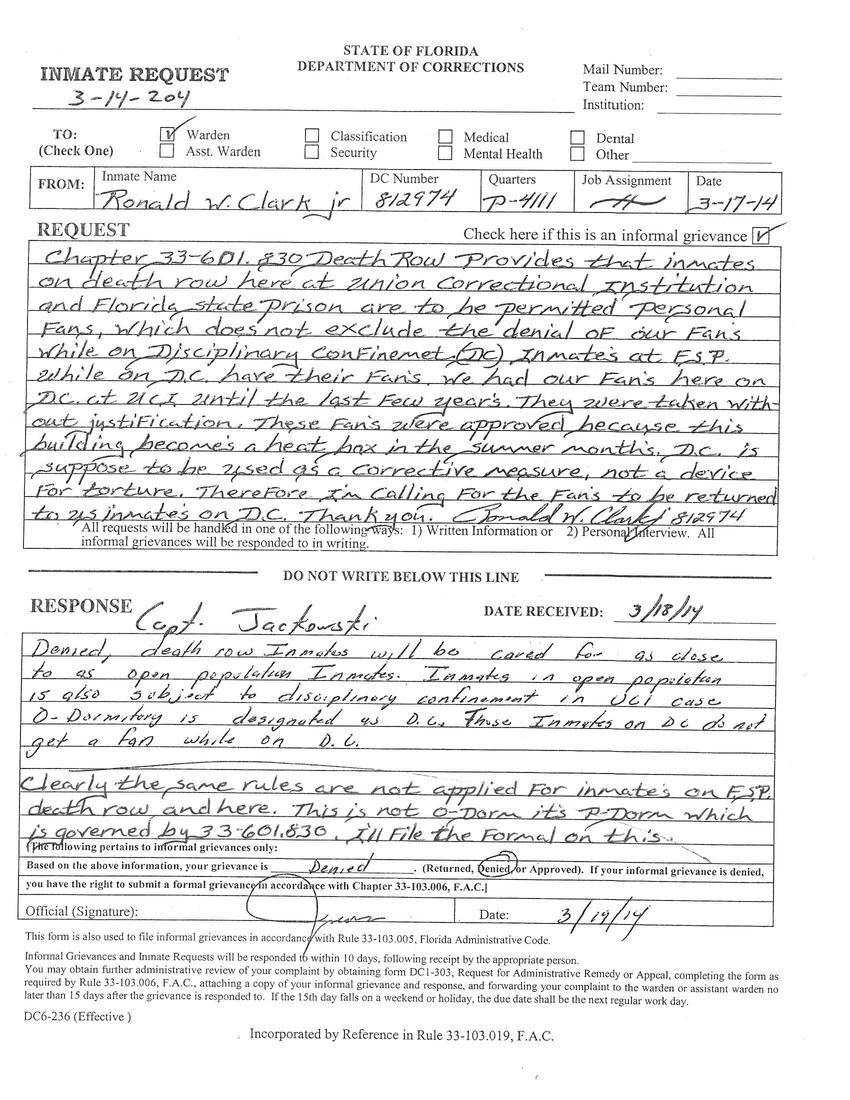 STATE OF FLORIDA
DEPARTMENT OF CORRECTIONS
INMATE REQUEST
3-14-204
Mail Number:
Team Number:
Institution:
TO:
(Check One)
Warden
Asst. Warden
Classification
Security
Medical
Mental Health
Dental
Other
FROM:
Inmate Name
Ronald W. Clark jr
DC Number
812974
Quarters
P-4111
Job Assignment
Date
3-17-14
REQUEST
Check here if this is an informal grievance
Chapter 33-601.830 Death Row Provides that inmates
on death row here at Union Correctional Institution
and Florida state prison are to be permitted personal
Fans, which does not exclude the denial of our Fan's
while on Disciplinary Confinemet (DC) Inmate's at F.S.P.
while on D.C. have their Fan's, we had our Fan's here on
D.C. at UCI until the last few year's. They were taken with-
out justification. These Fan's were approved because this
building become's a heat box in the summer months. D.C. is
suppose to be used as a corrective measure, not a device
for torture. Therefore I'm calling for the Fan's to be returned
to us inmates on D.C. Thank you. Ronald W. Clark jr 812974
All requests will be handled in one of the following ways: 1) Written Information or 2) Personal Interview. All
informal grievances will be responded to in writing.
DO NOT WRITE BELOW THIS LINE
RESPONSE Capt. Jackowski
DATE RECEIVED: 3/18/14
Denied, death row Inmates will be cared for as close
to as open population Inmates. Inmates in open population
is also subject to disciplinary confinement in UCI case
O-Dormitory is designated as D.C. Those Inmates on DC do not
get a fan while on D.C.
Clearly the same rules are not applied for inmate's on F.S.P.
death row, and here. This is not O-Dorm it's P-Dorm which
is governed by 33-601.830. I'll File the Formal on this.
(The following pertains to informal grievances only:
Based on the above information, your grievance is Denied. (Returned, Denied, or Approved). If your informal grievance is denied,
you have the right to submit a formal grievance in accordance with Chapter 33-103.006, F.A.C.
Official (Signature):
Date: 3/19/14
This form is also used to file informal grievances in accordance with Rule 33-103.005, Florida Administrative Code.
Informal Grievances and Inmate Requests will be responded to within 10 days, following receipt by the appropriate person.
You may obtain further administrative review of your complaint by obtaining form DC1-303, Request for Administrative Remedy or Appeal, completing the form as
required by Rule 33-103.006, F.A.C., attaching a copy of your informal grievance and response, and forwarding your complaint to the warden or assistant warden no
later than 15 days after the grievance is responded to. If the 15th day falls on a weekend or holiday, the due date shall be the next regular work day.
DC6-236 (Effective )
Incorporated by Reference in Rule 33-103.019, F.A.C.